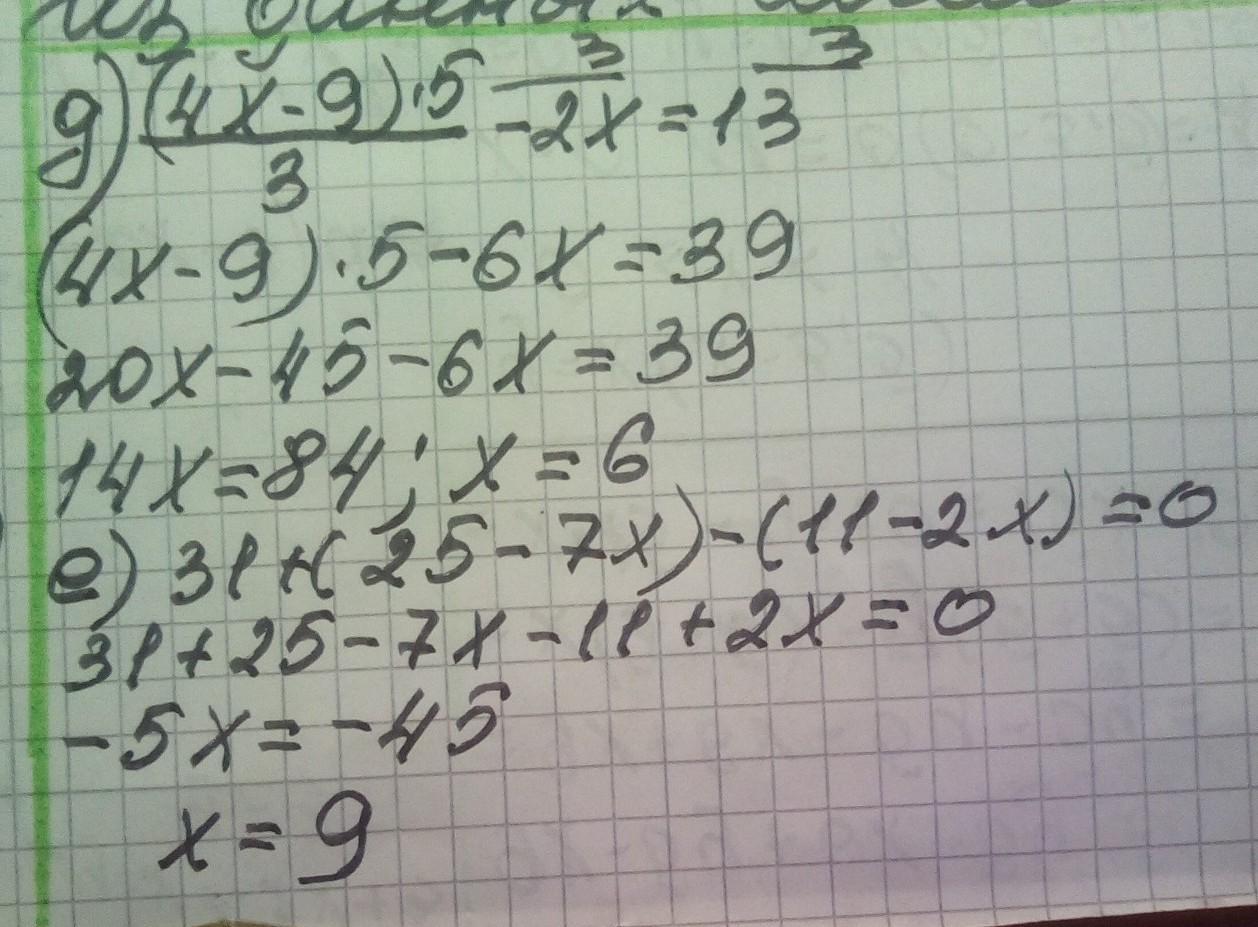 д) (4x-9)·5 / 3 - 2x = 13
3 3
(4x-9)·5-6x=39
20x-45-6x=39
14x=84; x=6
е) 31+(25-7x)-(11-2x)=0
31+25-7x-11+2x=0
-5x=-45
x=9